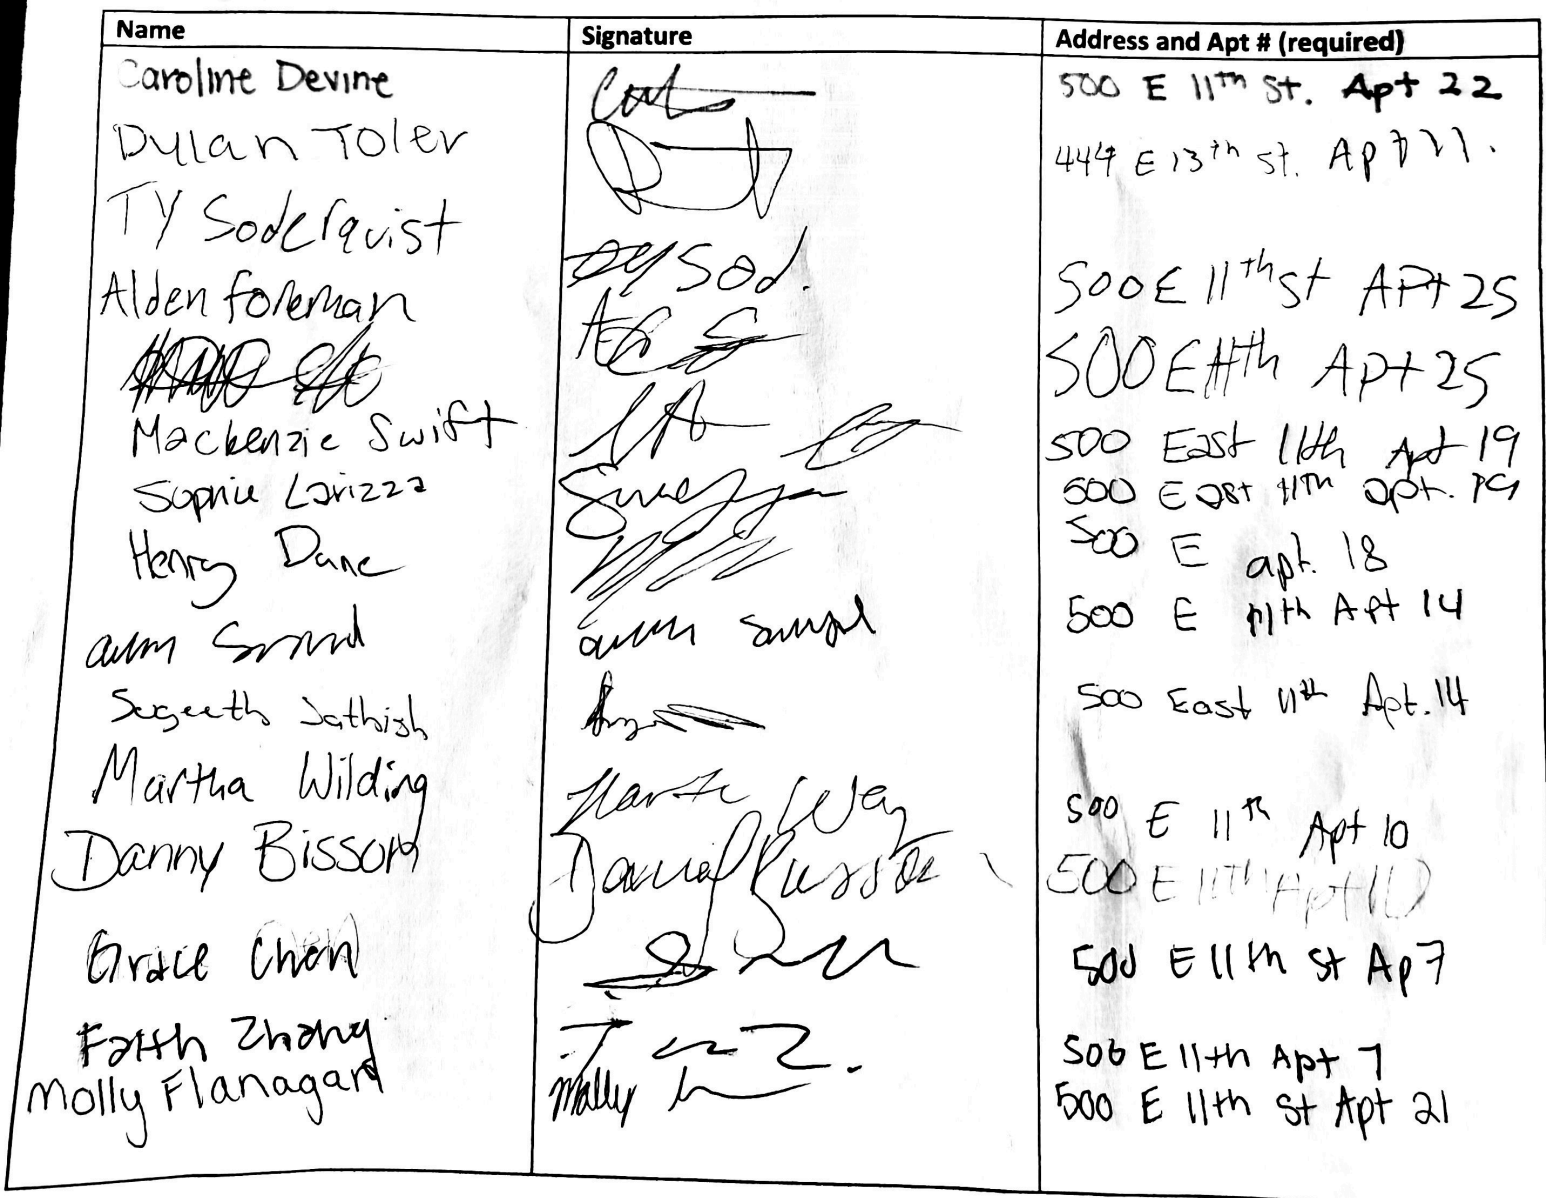 Name Signature Address and Apt # (required)
Caroline Devine 500 E 11th St. Apt 22
Dylan Toler 444 E 13th St. Apt 11.
TY Soderquist Ty Sod. 500 E 11th St APt 25
Alden Foreman 500 E 11th Apt 25
Mackenzie Swift 500 East 11th Apt 19
Sophie Larizza 500 East 11th apt. 19
Henry Dane 500 E apt. 18
500 E 11th Apt 14
Sugeeth Sathish 500 East 11th Apt. 14
Martha Wilding 500 E 11th Apt 10
Danny Bisson Daniel Bisson 500 E 11th Apt 10
Grace Chen 500 E 11th St Ap 7
Faith Zhang 500 E 11th Apt 7
Molly Flanagan Molly 500 E 11th St Apt 21